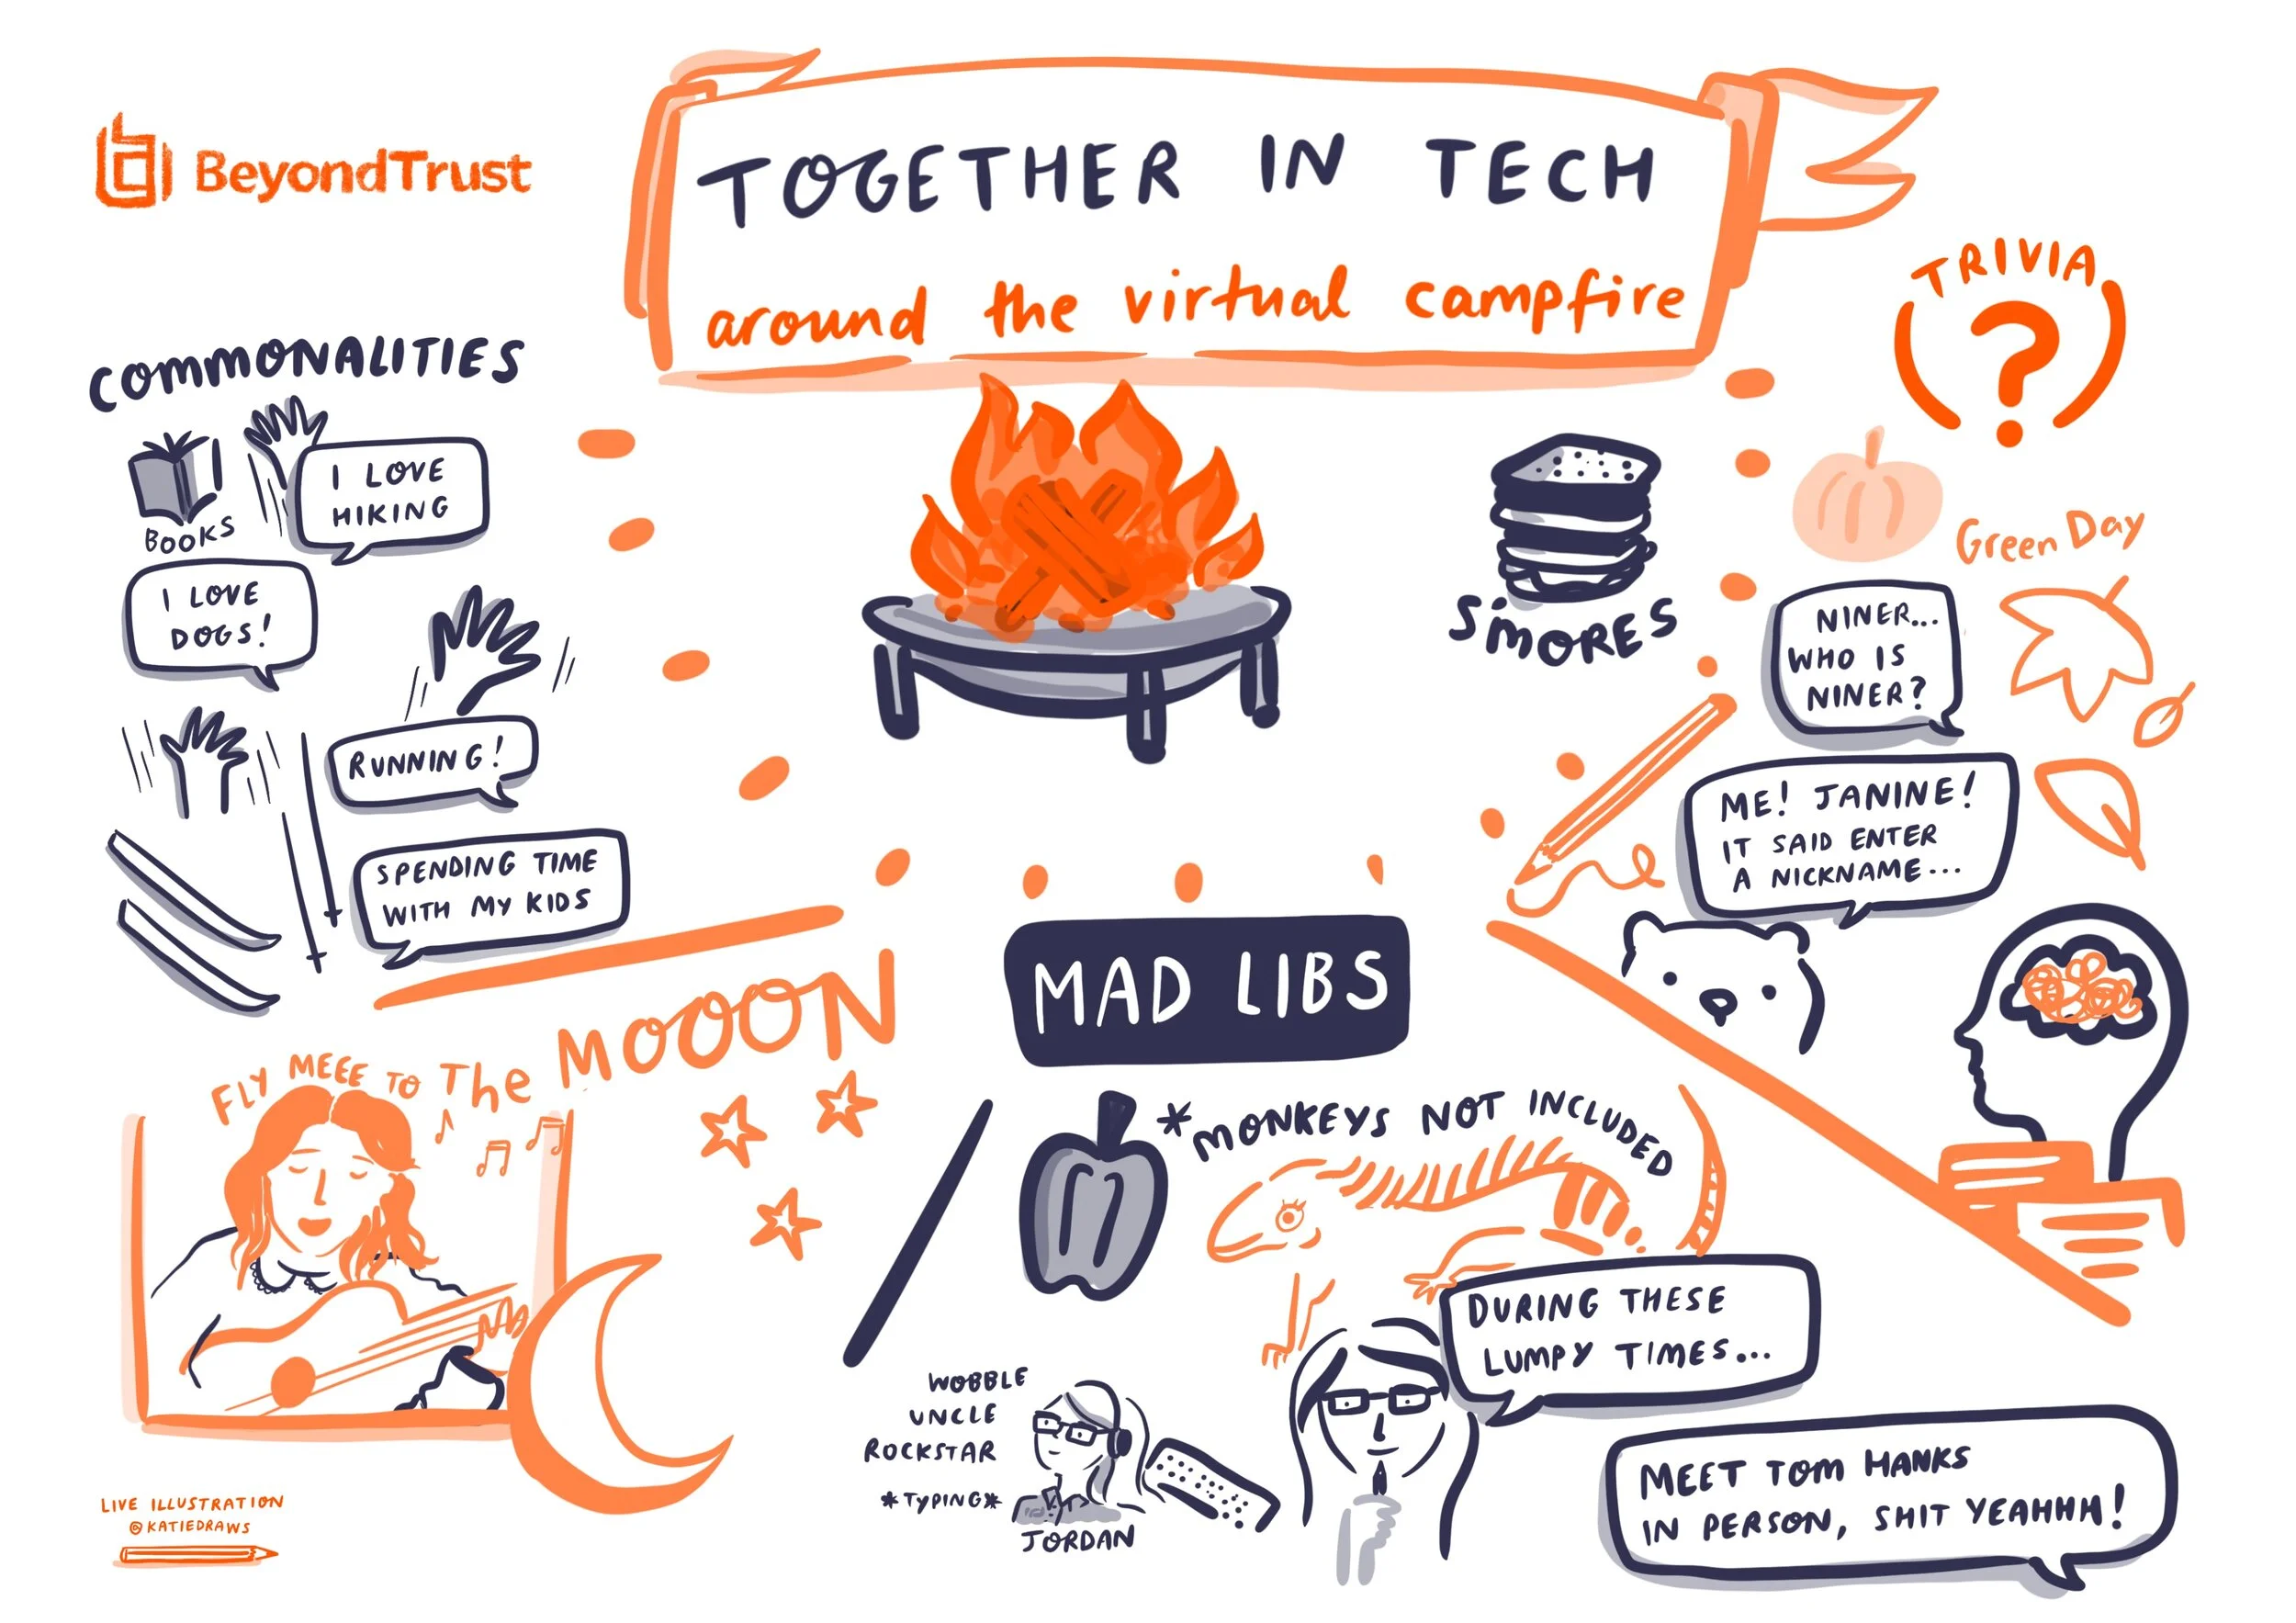 BeyondTrust
TOGETHER IN TECH
around the virtual campfire
COMMONALITIES
BOOKS
I LOVE
HIKING
I LOVE
DOGS!
RUNNING!
SPENDING TIME
WITH MY KIDS
S'MORES
TRIVIA
?
Green Day
NINER...
WHO IS
NINER?
ME! JANINE!
IT SAID ENTER
A NICKNAME...
FLY MEEE TO The MOOON
MAD LIBS
*MONKEYS NOT INCLUDED
DURING THESE
LUMPY TIMES...
WOBBLE
UNCLE
ROCKSTAR
*TYPING*
JORDAN
MEET TOM HANKS
IN PERSON, SHIT YEAHHH!
LIVE ILLUSTRATION
@KATIEDRAWS